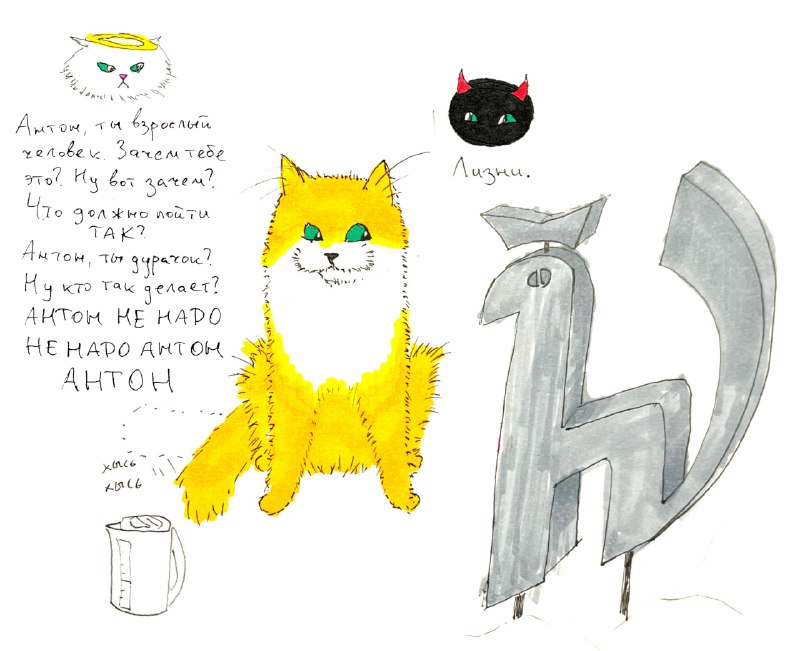 Антон, ты взрослый
человек. Зачем тебе
это? Ну вот зачем?
Что должно пойти
ТАК?
Антон, ты дурачок?
Ну кто так делает?
АНТОН НЕ НАДО
НЕ НАДО АНТОН
АНТОН
Лизни.
хысь
хысь